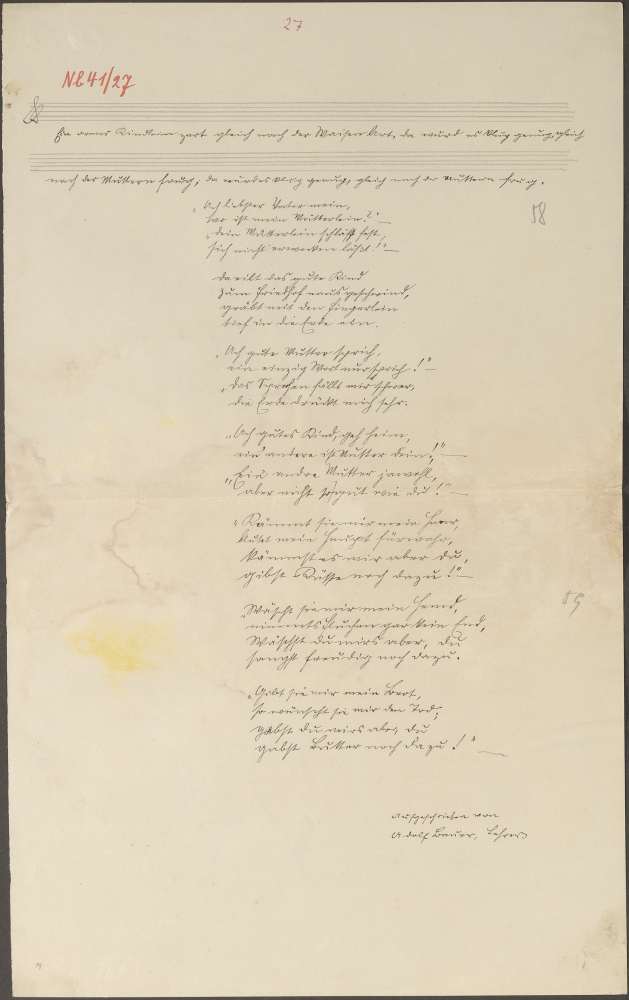 27
Nl 41/27
Ein armes Kindlein zart gleich nach der Waisen Art, da wurd es klug genug, gleich
nach der Muttern frug, da wurd es klug genug, gleich nach der Muttern frug.
18
"Ach liebster Vater mein,
wo ist mein Mütterlein?" —
"Dein Mütterlein schläft fest,
sich nicht erwecken läßt!" —
Da eilt das gute Kind
zum Friedhof naus geschwind,
gräbt mit den Fingerlein
tief in die Erde ein.
"Ach gute Mutter sprich,
ein einzig Wort nur sprich!" —
"Das Sprechen fällt mir schwer,
die Erde drückt mich sehr.
"Ach gutes Kind, geh heim,
ein' andere ist Mutter dein!" —
"Ein' andre Mutter jawohl,
aber nicht so gut wie du!" —
"Kämmt sie mir mein Haar,
blutet mein Haupt fürwahr,
kämmst es mir aber du,
gibst Küsse noch dazu!" —
"Wäscht sie mir mein Hemd,
nimmt's Fluchen gar kein End,
Wäschst du mirs aber, du
sangst freudig noch dazu.
59
"Gibt sie mir mein Brot,
so wünscht sie mir den Tod;
gabst du mirs aber, du
gabst Butter noch dazu!" —
Aufgeschrieben von
Adolf Bauer, Lehrer